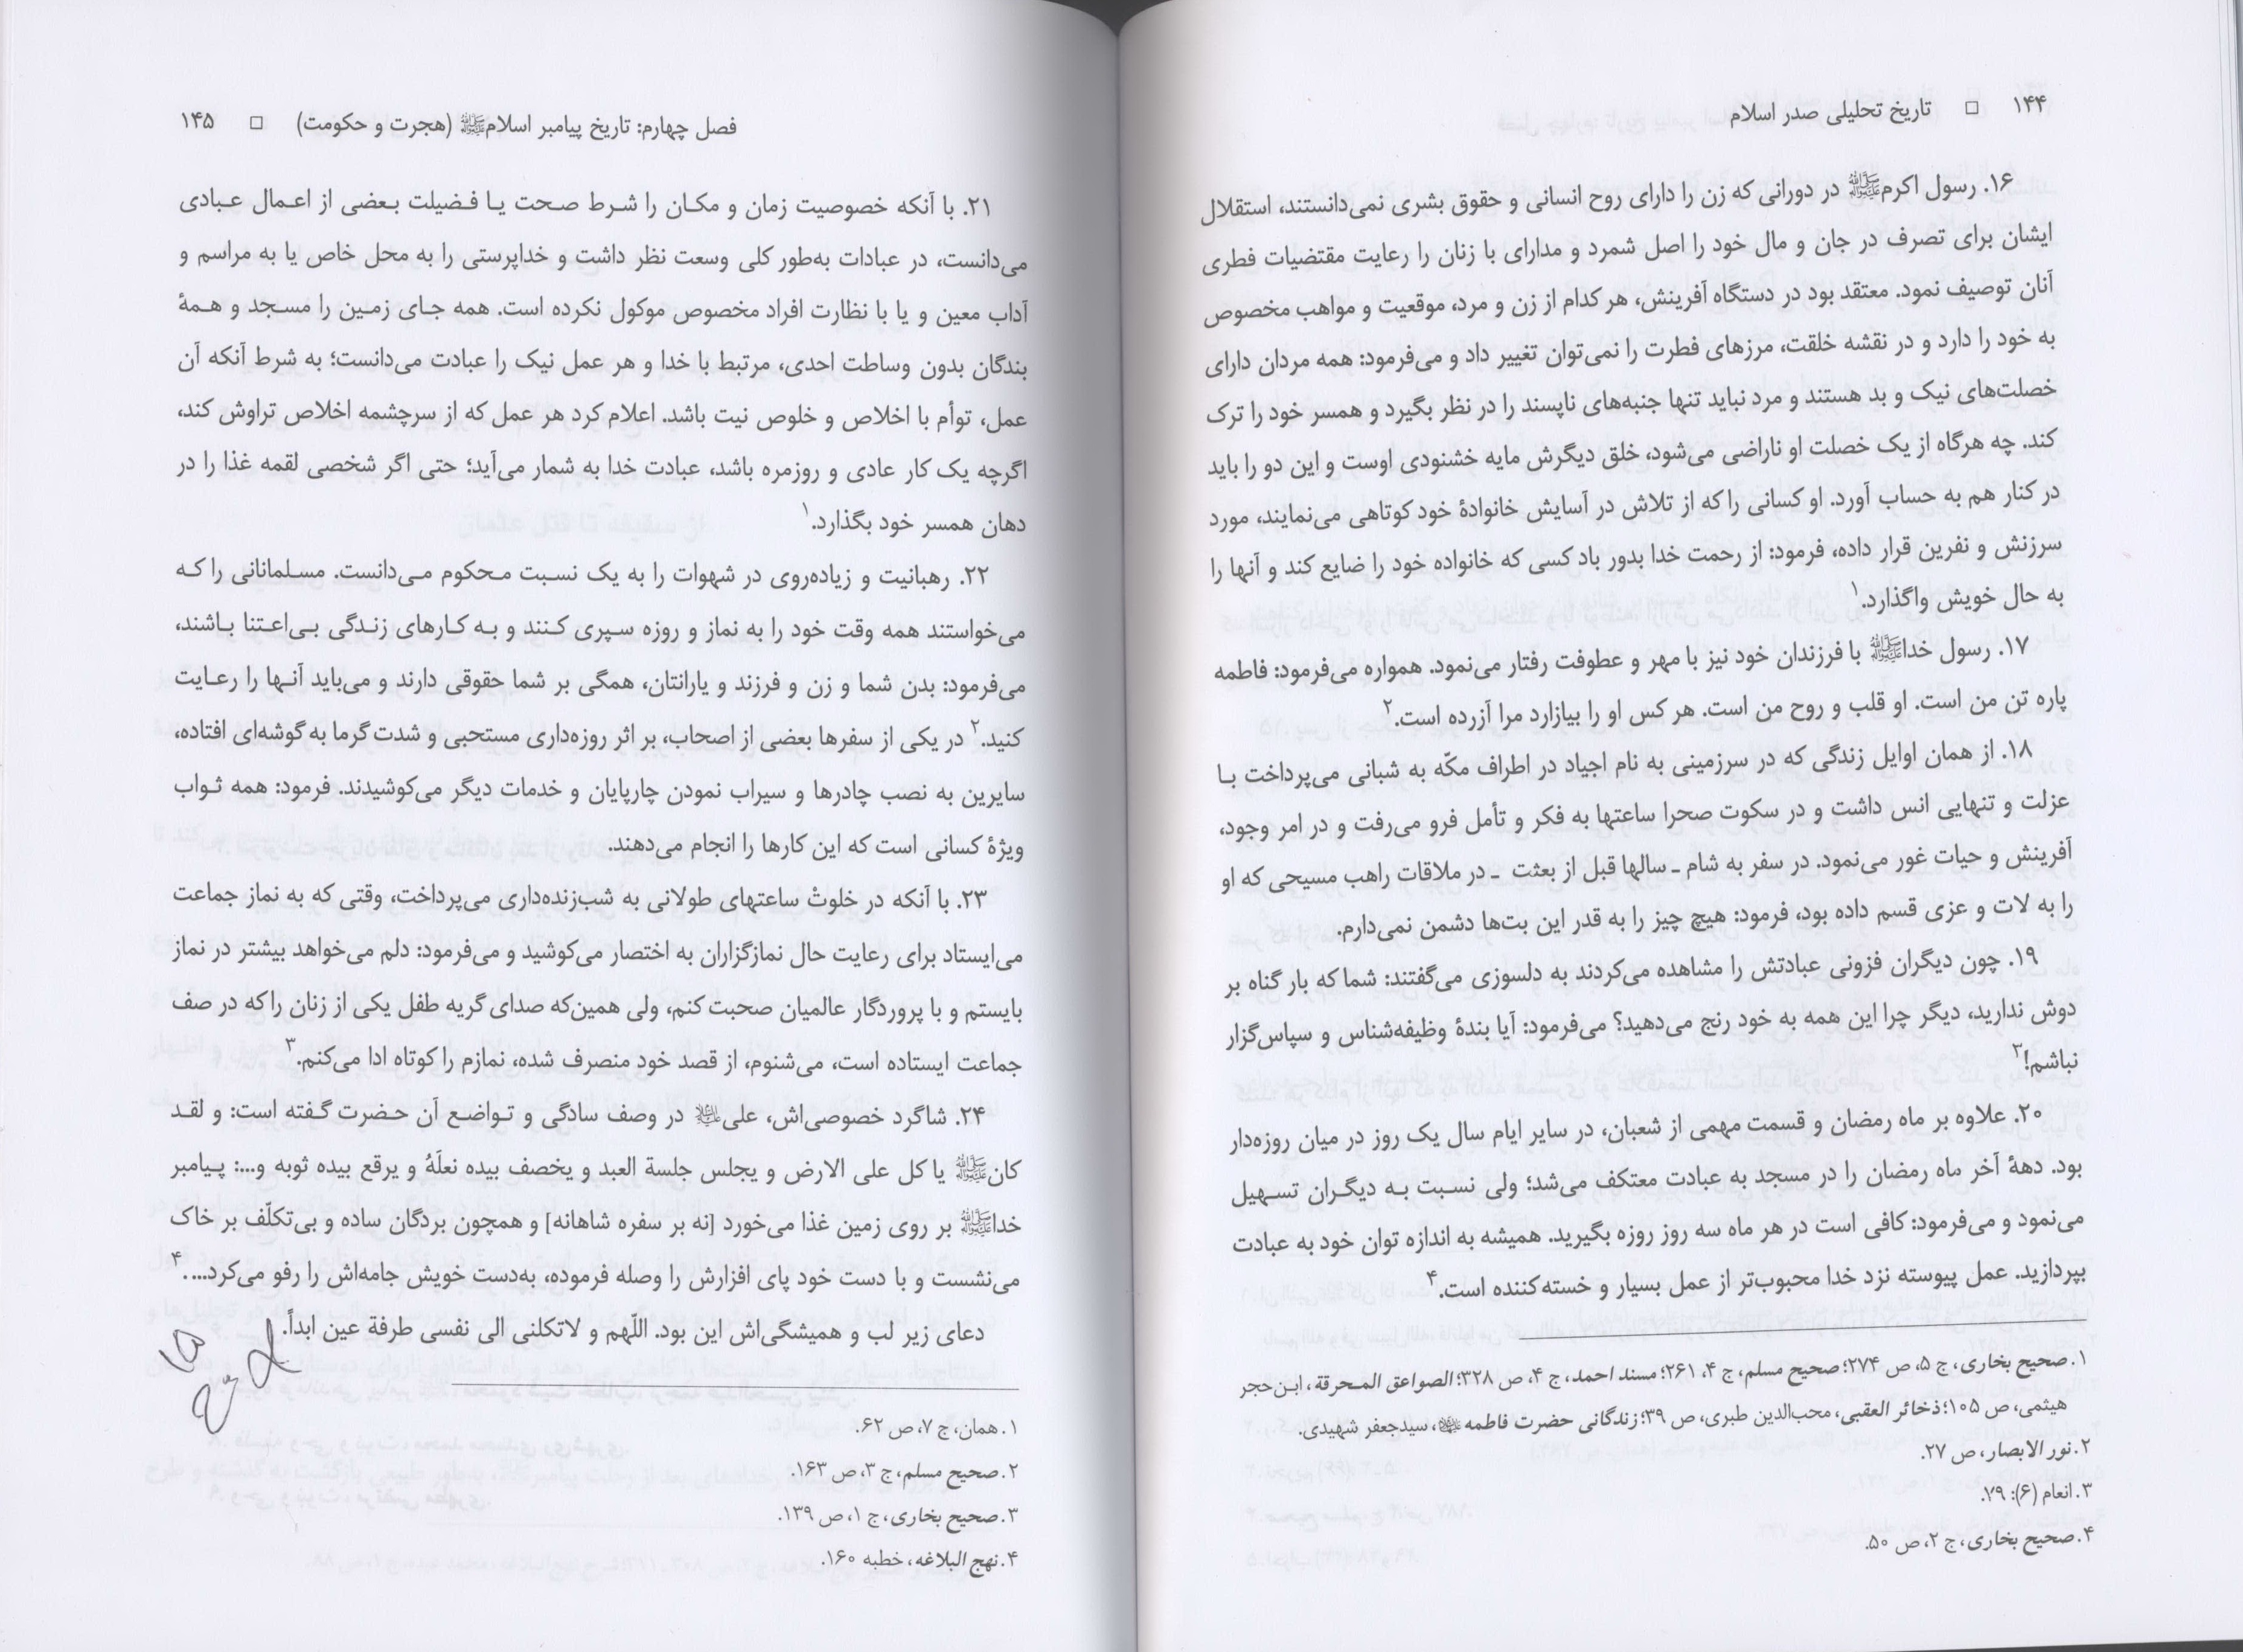 ۱۴۴ □ تاریخ تحلیلی صدر اسلام
۱۶. رسول اکرمﷺ در دورانی که زن را دارای روح انسانی و حقوق بشری نمی‌دانستند، استقلال
ایشان برای تصرف در جان و مال خود را اصل شمرد و مدارای با زنان را رعایت مقتضیات فطری
آنان توصیف نمود. معتقد بود در دستگاه آفرینش، هر کدام از زن و مرد، موقعیت و مواهب مخصوص
به خود را دارد و در نقشه خلقت، مرزهای فطرت را نمی‌توان تغییر داد و می‌فرمود: همه مردان دارای
خصلت‌های نیک و بد هستند و مرد نباید تنها جنبه‌های ناپسند را در نظر بگیرد و همسر خود را ترک
کند. چه هرگاه از یک خصلت او ناراضی می‌شود، خلق دیگرش مایه خشنودی اوست و این دو را باید
در کنار هم به حساب آورد. او کسانی را که از تلاش در آسایش خانوادهٔ خود کوتاهی می‌نمایند، مورد
سرزنش و نفرین قرار داده، فرمود: از رحمت خدا بدور باد کسی که خانواده خود را ضایع کند و آنها را
به حال خویش واگذارد.۱
۱۷. رسول خداﷺ با فرزندان خود نیز با مهر و عطوفت رفتار می‌نمود. همواره می‌فرمود: فاطمه
پاره تن من است. او قلب و روح من است. هر کس او را بیازارد مرا آزرده است.۲
۱۸. از همان اوایل زندگی که در سرزمینی به نام اجیاد در اطراف مکّه به شبانی می‌پرداخت بـا
عزلت و تنهایی انس داشت و در سکوت صحرا ساعتها به فکر و تأمل فرو می‌رفت و در امر وجود،
آفرینش و حیات غور می‌نمود. در سفر به شام ـ سالها قبل از بعثت ـ در ملاقات راهب مسیحی که او
را به لات و عزی قسم داده بود، فرمود: هیچ چیز را به قدر این بت‌ها دشمن نمی‌دارم.
۱۹. چون دیگران فزونی عبادتش را مشاهده می‌کردند به دلسوزی می‌گفتند: شما که بار گناه بر
دوش ندارید، دیگر چرا این همه به خود رنج می‌دهید؟ می‌فرمود: آیا بندهٔ وظیفه‌شناس و سپاس‌گزار
نباشم!۳
۲۰. علاوه بر ماه رمضان و قسمت مهمی از شعبان، در سایر ایام سال یک روز در میان روزه‌دار
بود. دههٔ آخر ماه رمضان را در مسجد به عبادت معتکف می‌شد؛ ولی نسبت به دیگران تسهیل
می‌نمود و می‌فرمود: کافی است در هر ماه سه روز روزه بگیرید. همیشه به اندازه توان خود به عبادت
بپردازید. عمل پیوسته نزد خدا محبوب‌تر از عمل بسیار و خسته‌کننده است.۴
۱. صحیح بخاری، ج ۵، ص ۲۷۴؛ صحیح مسلم، ج ۴، ۲۶۱؛ مسند احمد، ج ۴، ص ۳۲۸؛ الصواعق المحرقة، ابن‌حجر
هیثمی، ص ۱۰۵؛ ذخائر العقبی، محب‌الدین طبری، ص ۳۹؛ زندگانی حضرت فاطمه، سیدجعفر شهیدی.
۲. نور الابصار، ص ۲۷.
۳. انعام (۶): ۲۹.
۴. صحیح بخاری، ج ۲، ص ۵۰.
فصل چهارم: تاریخ پیامبر اسلامﷺ (هجرت و حکومت) □ ۱۴۵
۲۱. با آنکه خصوصیت زمان و مکان را شرط صحت یا فضیلت بعضی از اعمال عبادی
می‌دانست، در عبادات به‌طور کلی وسعت نظر داشت و خداپرستی را به محل خاص یا به مراسم و
آداب معین و یا با نظارت افراد مخصوص موکول نکرده است. همه جای زمین را مسجد و همهٔ
بندگان بدون وساطت احدی، مرتبط با خدا و هر عمل نیک را عبادت می‌دانست؛ به شرط آنکه آن
عمل، توأم با اخلاص و خلوص نیت باشد. اعلام کرد هر عمل که از سرچشمه اخلاص تراوش کند،
اگرچه یک کار عادی و روزمره باشد، عبادت خدا به شمار می‌آید؛ حتی اگر شخصی لقمه غذا را در
دهان همسر خود بگذارد.۱
۲۲. رهبانیت و زیاده‌روی در شهوات را به یک نسبت محکوم می‌دانست. مسلمانانی را که
می‌خواستند همه وقت خود را به نماز و روزه سپری کنند و به کارهای زندگی بی‌اعتنا باشند،
می‌فرمود: بدن شما و زن و فرزند و یارانتان، همگی بر شما حقوقی دارند و می‌باید آنها را رعایت
کنید.۲ در یکی از سفرها بعضی از اصحاب، بر اثر روزه‌داری مستحبی و شدت گرما به گوشه‌ای افتاده،
سایرین به نصب چادرها و سیراب نمودن چارپایان و خدمات دیگر می‌کوشیدند. فرمود: همه ثواب
ویژهٔ کسانی است که این کارها را انجام می‌دهند.
۲۳. با آنکه در خلوتْ ساعتهای طولانی به شب‌زنده‌داری می‌پرداخت، وقتی که به نماز جماعت
می‌ایستاد برای رعایت حال نمازگزاران به اختصار می‌کوشید و می‌فرمود: دلم می‌خواهد بیشتر در نماز
بایستم و با پروردگار عالمیان صحبت کنم، ولی همین‌که صدای گریه طفل یکی از زنان را که در صف
جماعت ایستاده است، می‌شنوم، از قصد خود منصرف شده، نمازم را کوتاه ادا می‌کنم.۳
۲۴. شاگرد خصوصی‌اش، علی در وصف سادگی و تواضع آن حضرت گفته است: و لقد
کانﷺ یا کل علی الارض و یجلس جلسة العبد و یخصف بیده نعلَهُ و یرقع بیده ثوبه و...: پیامبر
خداﷺ بر روی زمین غذا می‌خورد [نه بر سفره شاهانه] و همچون بردگان ساده و بی‌تکلّف بر خاک
می‌نشست و با دست خود پای افزارش را وصله فرموده، به‌دست خویش جامه‌اش را رفو می‌کرد....۴
دعای زیر لب و همیشگی‌اش این بود. اللّهم و لاتکلنی الی نفسی طرفة عین ابداً.
۱. همان، ج ۷، ص ۶۲.
۲. صحیح مسلم، ج ۳، ص ۱۶۳.
۳. صحیح بخاری، ج ۱، ص ۱۳۹.
۴. نهج البلاغه، خطبه ۱۶۰.